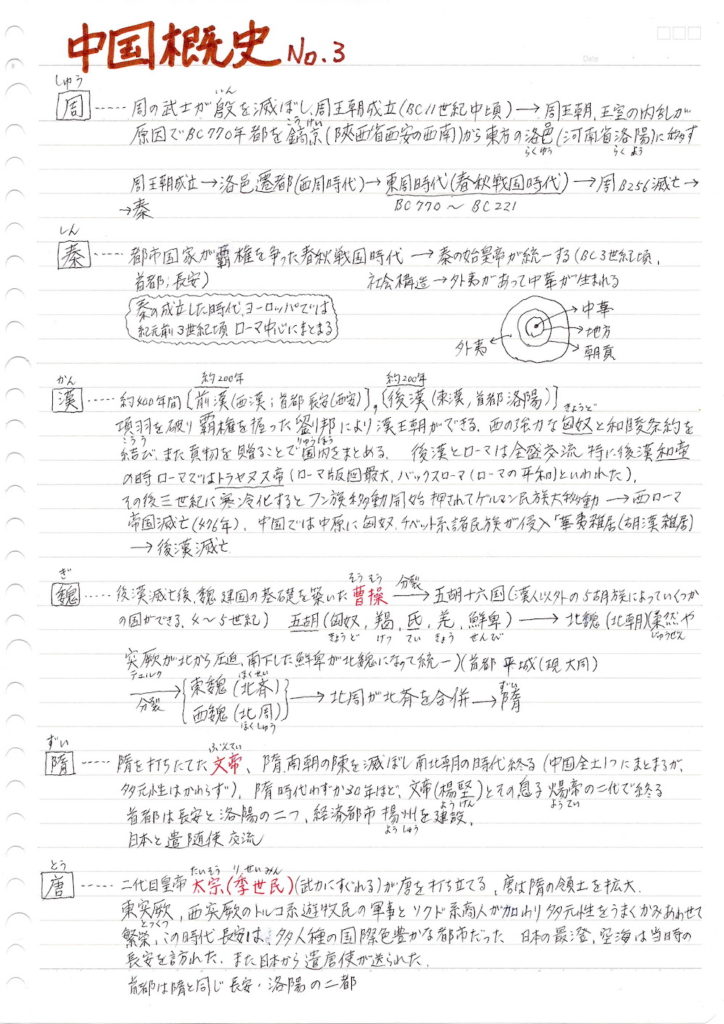 中国概史 No.3
Date
しゅう
いん
周 ····· 周の武士が殷を滅ぼし、周王朝成立(BC11世紀中頃) → 周王朝、王室の内乱が
こうけい
原因でBC770年都を鎬京(陝西省西安の西南)から東方の洛邑(河南省洛陽)に移す
らくゆう らくよう
周王朝成立→洛邑遷都(西周時代)→東周時代(春秋戦国時代)→周B256滅亡→
→秦 BC770 〜 BC221
しん
秦 ····· 都市国家が覇権を争った春秋戦国時代 → 秦の始皇帝が統一する(BC3世紀頃、
首都;長安) 社会構造→外夷があって中華が生まれる
秦の成立した時代、ヨーロッパでは
紀元前3世紀頃 ローマ中心にまとまる
中華
地方
朝貢
外夷
かん
約200年 約200年
漢 ····· 約400年間[前漢(西漢;首都 長安(西安)],[後漢(東漢,首都洛陽)]
きょうど
項羽を破り覇権を握った劉邦により漢王朝ができる。西の強力な匈奴と和睦条約を
こうう りゅうほう
結び、また貢物を贈ることで国内をまとめる。 後漢とローマは全盛交流 特に後漢和帝
の時ローマではトラヤヌス帝(ローマ版図最大、パックスローマ(ローマの平和)といわれた)。
その後三世紀に寒冷化するとフン族移動開始 押されてゲルマン民族大移動 → 西ローマ
帝国滅亡(476年)、中国では中原に匈奴、チベット系諸民族が侵入「華夷雑居(胡漢雑居)
→後漢滅亡
ぎ
そうそう 分裂
魏 ····· 後漢滅亡後、魏建国の基礎を築いた曹操 → 五胡十六国(漢人以外の5胡族によっていくつか
の国ができる、4〜5世紀) 五胡(匈奴、羯、氐、羌、鮮卑) → 北魏(北朝)(柔然や
きょうど けつ てい きょう せんぴ じゅうせん
突厥が北から圧迫、南下した鮮卑が北魏になって統一)(首都 平城(現 大同)
テュルク
分裂
東魏(北斉)
ほくせい
西魏(北周)
ほくしゅう
→ 北周が北斉を合併 → 隋
ずい
ずい
ぶんてい
隋 ····· 隋を打ちたてた文帝、隋、南朝の陳を滅ぼし南北朝の時代終る(中国全土1つにまとまるが、
多元性はかわらず)、隋時代わずか30年ほど、文帝(楊堅)とその息子煬帝の二代で終る
ようけん ようてい
首都は長安と洛陽の二つ、経済都市 揚州を建設、
ようしゅう
日本と遣随使交流
とう
たいそう りせいみん
唐 ····· 二代目皇帝 太宗(李世民)(武力にすぐれる)が唐を打ち立てる、唐は隋の領土を拡大、
東突厥、西突厥のトルコ系遊牧民の軍事とソクド系商人が加わり多元性をうまくかみあわせて
とっくつ
繁栄、この時代長安は、多人種の国際色豊かな都市だった 日本の最澄、空海は当時の
長安を訪れた、また日本から遣唐使が送られた、
首都は隋と同じ長安・洛陽の二都